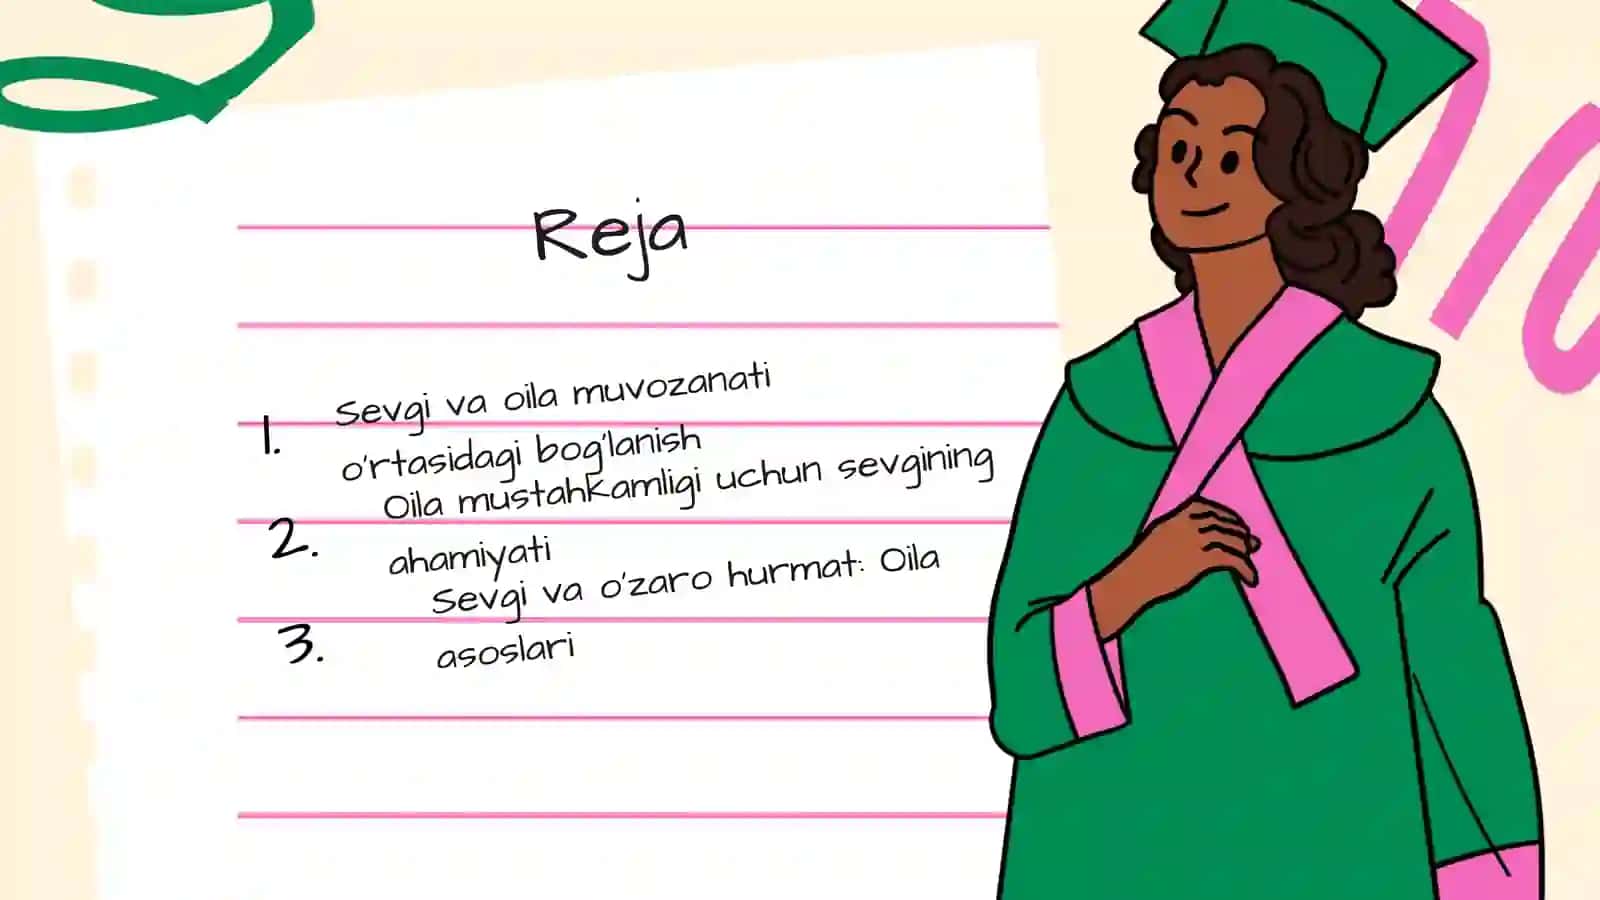 Reja
1. Sevgi va oila muvozanati
o'rtasidagi bog'lanish
2. Oila mustahkamligi uchun sevgining
ahamiyati
3. Sevgi va o'zaro hurmat: Oila
asoslari